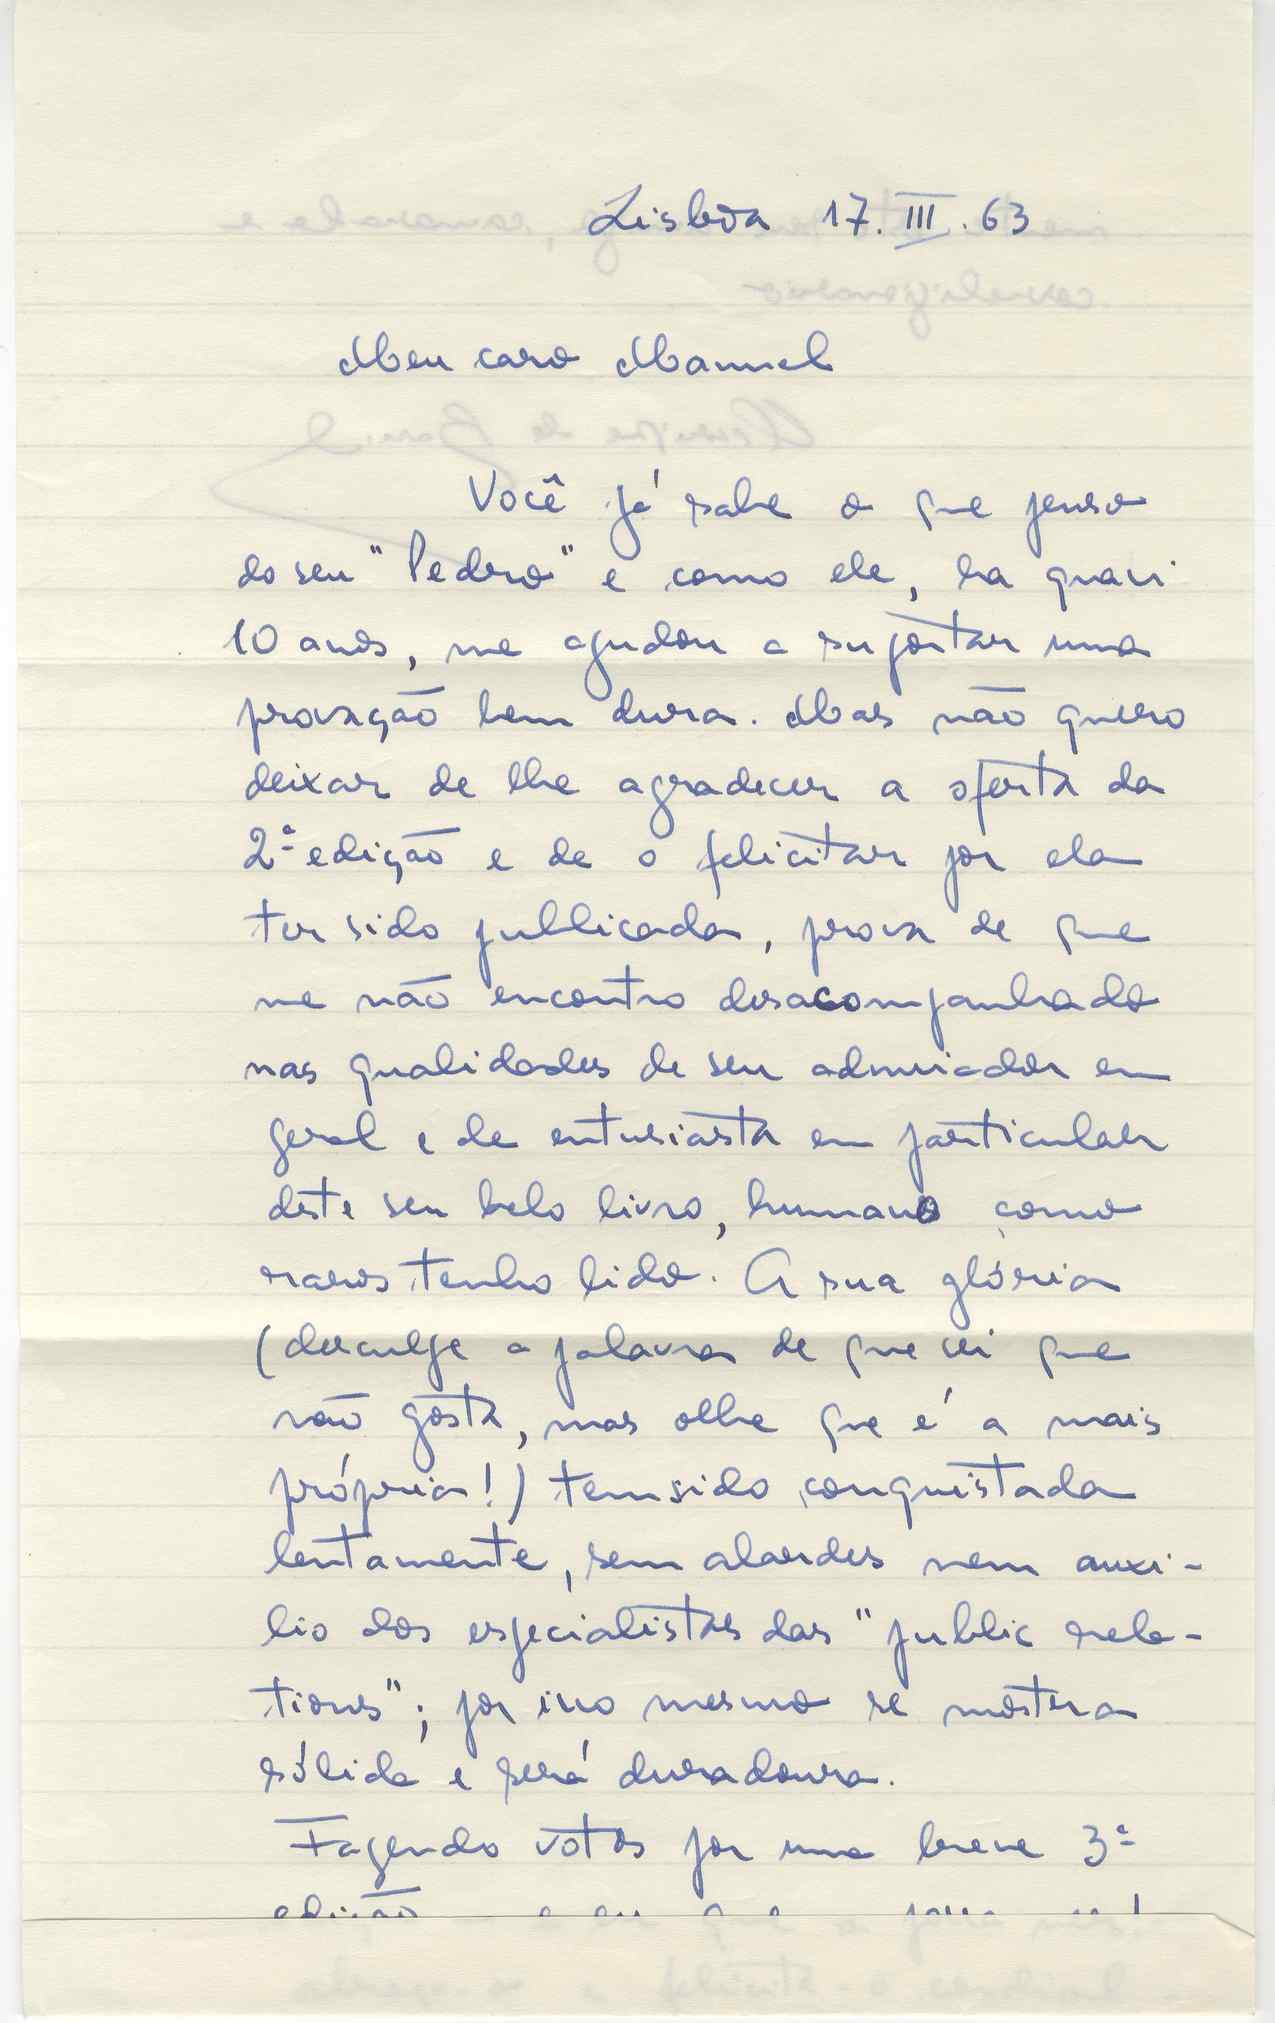 Lisboa 17.III.63
Meu caro Manuel
Você já sabe o que penso
do seu "Pedro" e como ele, ha quasi
10 anos, me ajudou a suportar uma
provação bem dura. Mas não quero
deixar de lhe agradecer a oferta da
2ª edição e de o felicitar por ela
ter sido publicada, prova de que
me não encontro desacompanhado
nas qualidades de seu admirador em
geral e de entusiasta em particular
deste seu belo livro, humano como
raros tenho lido. A sua glória
(desculpe a palavra de que sei que
não gosta, mas olhe que é a mais
própria!) tem sido conquistada
lentamente, sem alardes nem auxi-
lio dos especialistas das "public rela-
tions"; por isso mesmo se mostra
sólida e será duradoura.
Fazendo votos por uma breve 3ª
edição